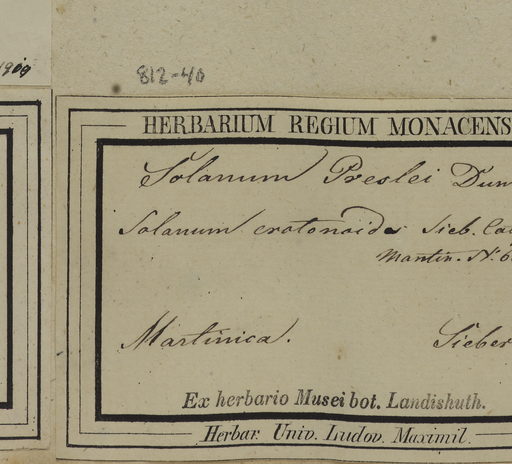 1909
812-40
HERBARIUM REGIUM MONACENS
Solanum Preslei Dun
Solanum crotonoides Sieb. Ca
Martin. N. 6
Martinica. Sieber
Ex herbario Musei bot. Landishuth.
Herbar. Univ. Ludov. Maximil.